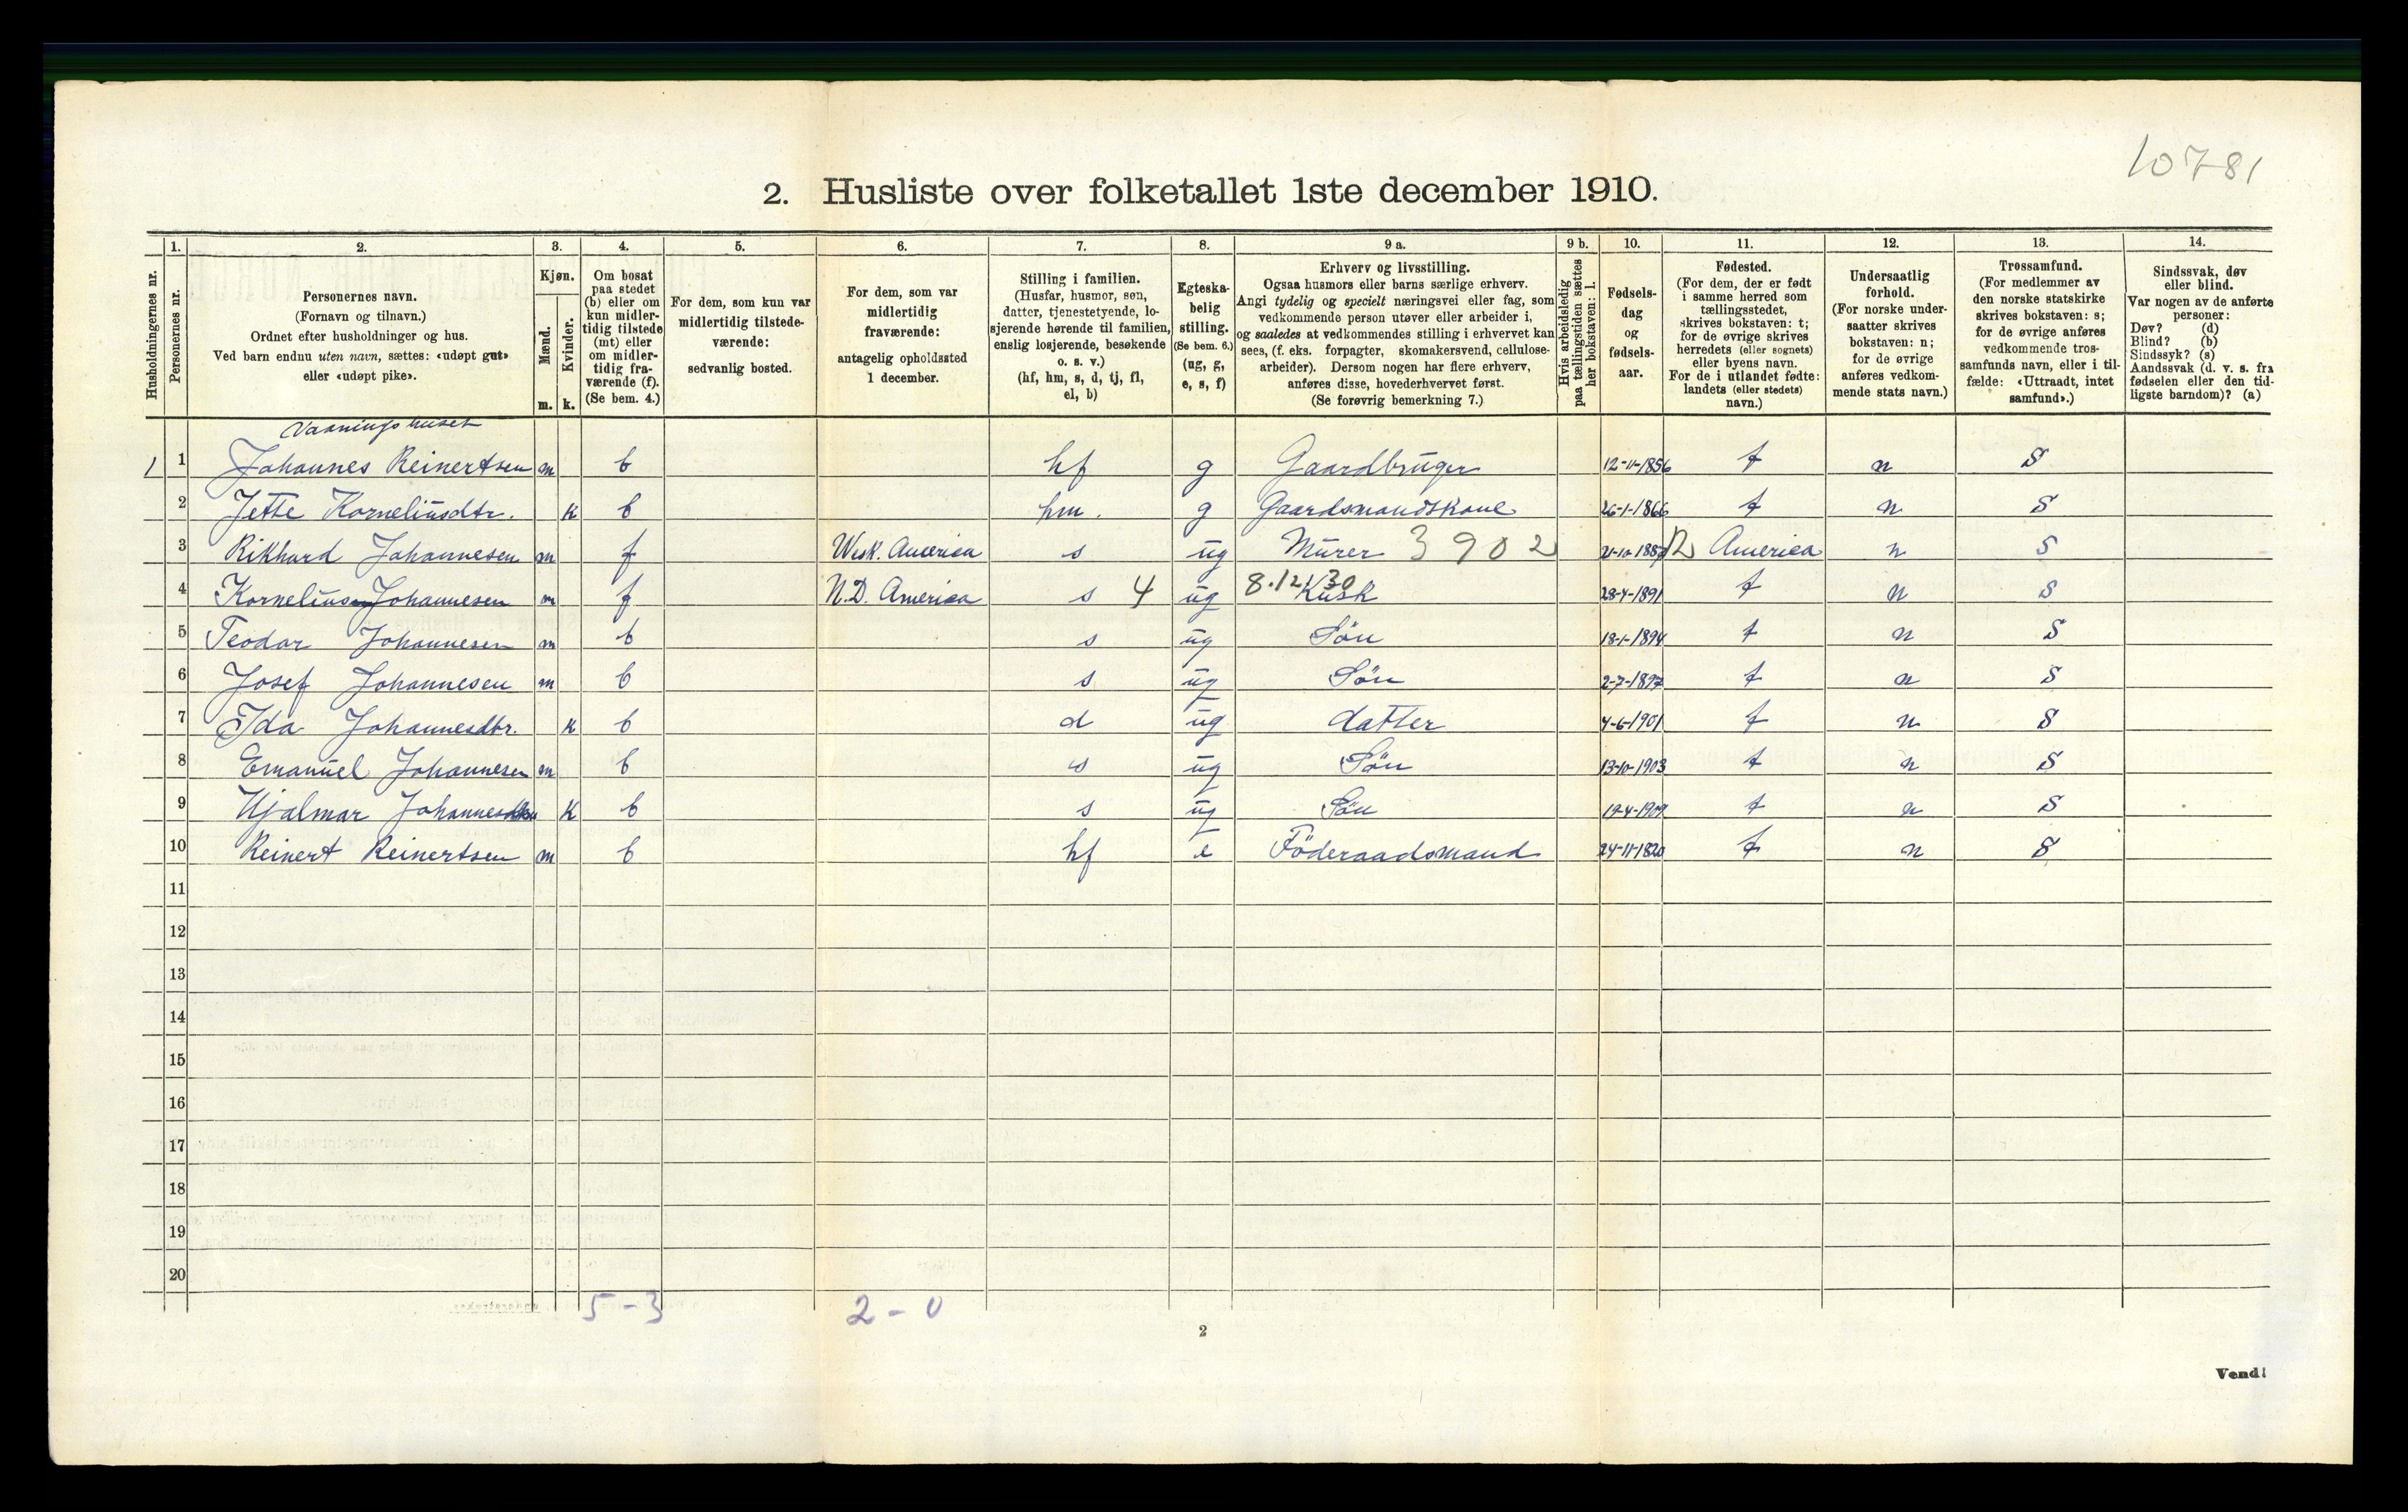 10781
2. Husliste over folketallet 1ste december 1910.
Husholdningernes nr.
1. Personernes nr.
2. Personernes navn.
(Fornavn og tilnavn.)
Ordnet efter husholdninger og hus.
Ved barn endnu uten navn, sættes: «udøpt gut»
eller «udøpt pike».
3. Kjøn.
Mænd. m.
Kvinder. k.
4. Om bosat
paa stedet
(b) eller om
kun midler-
tidig tilstede
(mt) eller
om midler-
tidig fra-
værende (f).
(Se bem. 4.)
5. For dem, som kun var
midlertidig tilstede-
værende:
sedvanlig bosted.
6. For dem, som var
midlertidig
fraværende:
antagelig opholdssted
1 december.
7. Stilling i familien.
(Husfar, husmor, søn,
datter, tjenestetyende, lo-
sjerende hørende til familien,
enslig losjerende, besøkende
o. s. v.)
(hf, hm, s, d, tj, fl,
el, b)
8. Egteska-
belig
stilling.
(Se bem. 6.)
(ug, g,
e, s, f)
9 a. Erhverv og livsstilling.
Ogsaa husmors eller barns særlige erhverv.
Angi tydelig og specielt næringsvei eller fag, som
vedkommende person utøver eller arbeider i,
og saaledes at vedkommendes stilling i erhvervet kan
sees, (f. eks. forpagter, skomakersvend, cellulose-
arbeider). Dersom nogen har flere erhverv,
anføres disse, hovederhvervet først.
(Se forøvrig bemerkning 7.)
9 b. Hvis arbeidsledig
paa tællingstiden sættes
her bokstaven: l.
10. Fødsels-
dag
og
fødsels-
aar.
11. Fødested.
(For dem, der er født
i samme herred som
tællingsstedet,
skrives bokstaven: t;
for de øvrige skrives
herredets (eller sognets)
eller byens navn.
For de i utlandet fødte:
landets (eller stedets)
navn.)
12. Undersaatlig
forhold.
(For norske under-
saatter skrives
bokstaven: n;
for de øvrige
anføres vedkom-
mende stats navn.)
13. Trossamfund.
(For medlemmer av
den norske statskirke
skrives bokstaven: s;
for de øvrige anføres
vedkommende tros-
samfunds navn, eller i til-
fælde: «Uttraadt, intet
samfund».)
14. Sindssvak, døv
eller blind.
Var nogen av de anførte
personer:
Døv? (d)
Blind? (b)
Sindssyk? (s)
Aandssvak (d. v. s. fra
fødselen eller den tid-
ligste barndom)? (a)
Vaaningshuset
1 1 Johannes Reinertsen m b hf g Gaardbruger 12-11-1856 t n s
2 Jette Korneliusdtr. k b hm. g Gaardsmandskone 26-1-1866 t n s
3 Rikhard Johannesen m f Wisk. America s ug Mürer 3902 America n s
4 Kornelius Johannesen m f N.D. America s 4 ug 8.12.1/30 Kusk 28-4-1891 t n s
5 Teodor Johannesen m b s ug Sön 18-1-1894 t n s
6 Josef Johannesen m b s ug Sön 2-7-1897 t n s
7 Ida Johannesdtr. k b d ug datter 4-6-1901 t n s
8 Emanuel Johannesen m b s ug Sön 13-10-1903 t n s
9 Hjalmar k b s ug Sön 19-4-1909 t n s
10 Reinert Reinertsen m b hf e Föderaadsmand 24-11-1820 t n s
11
12
13
14
15
16
17
18
19
20
5-3 2-0
2
Vend!